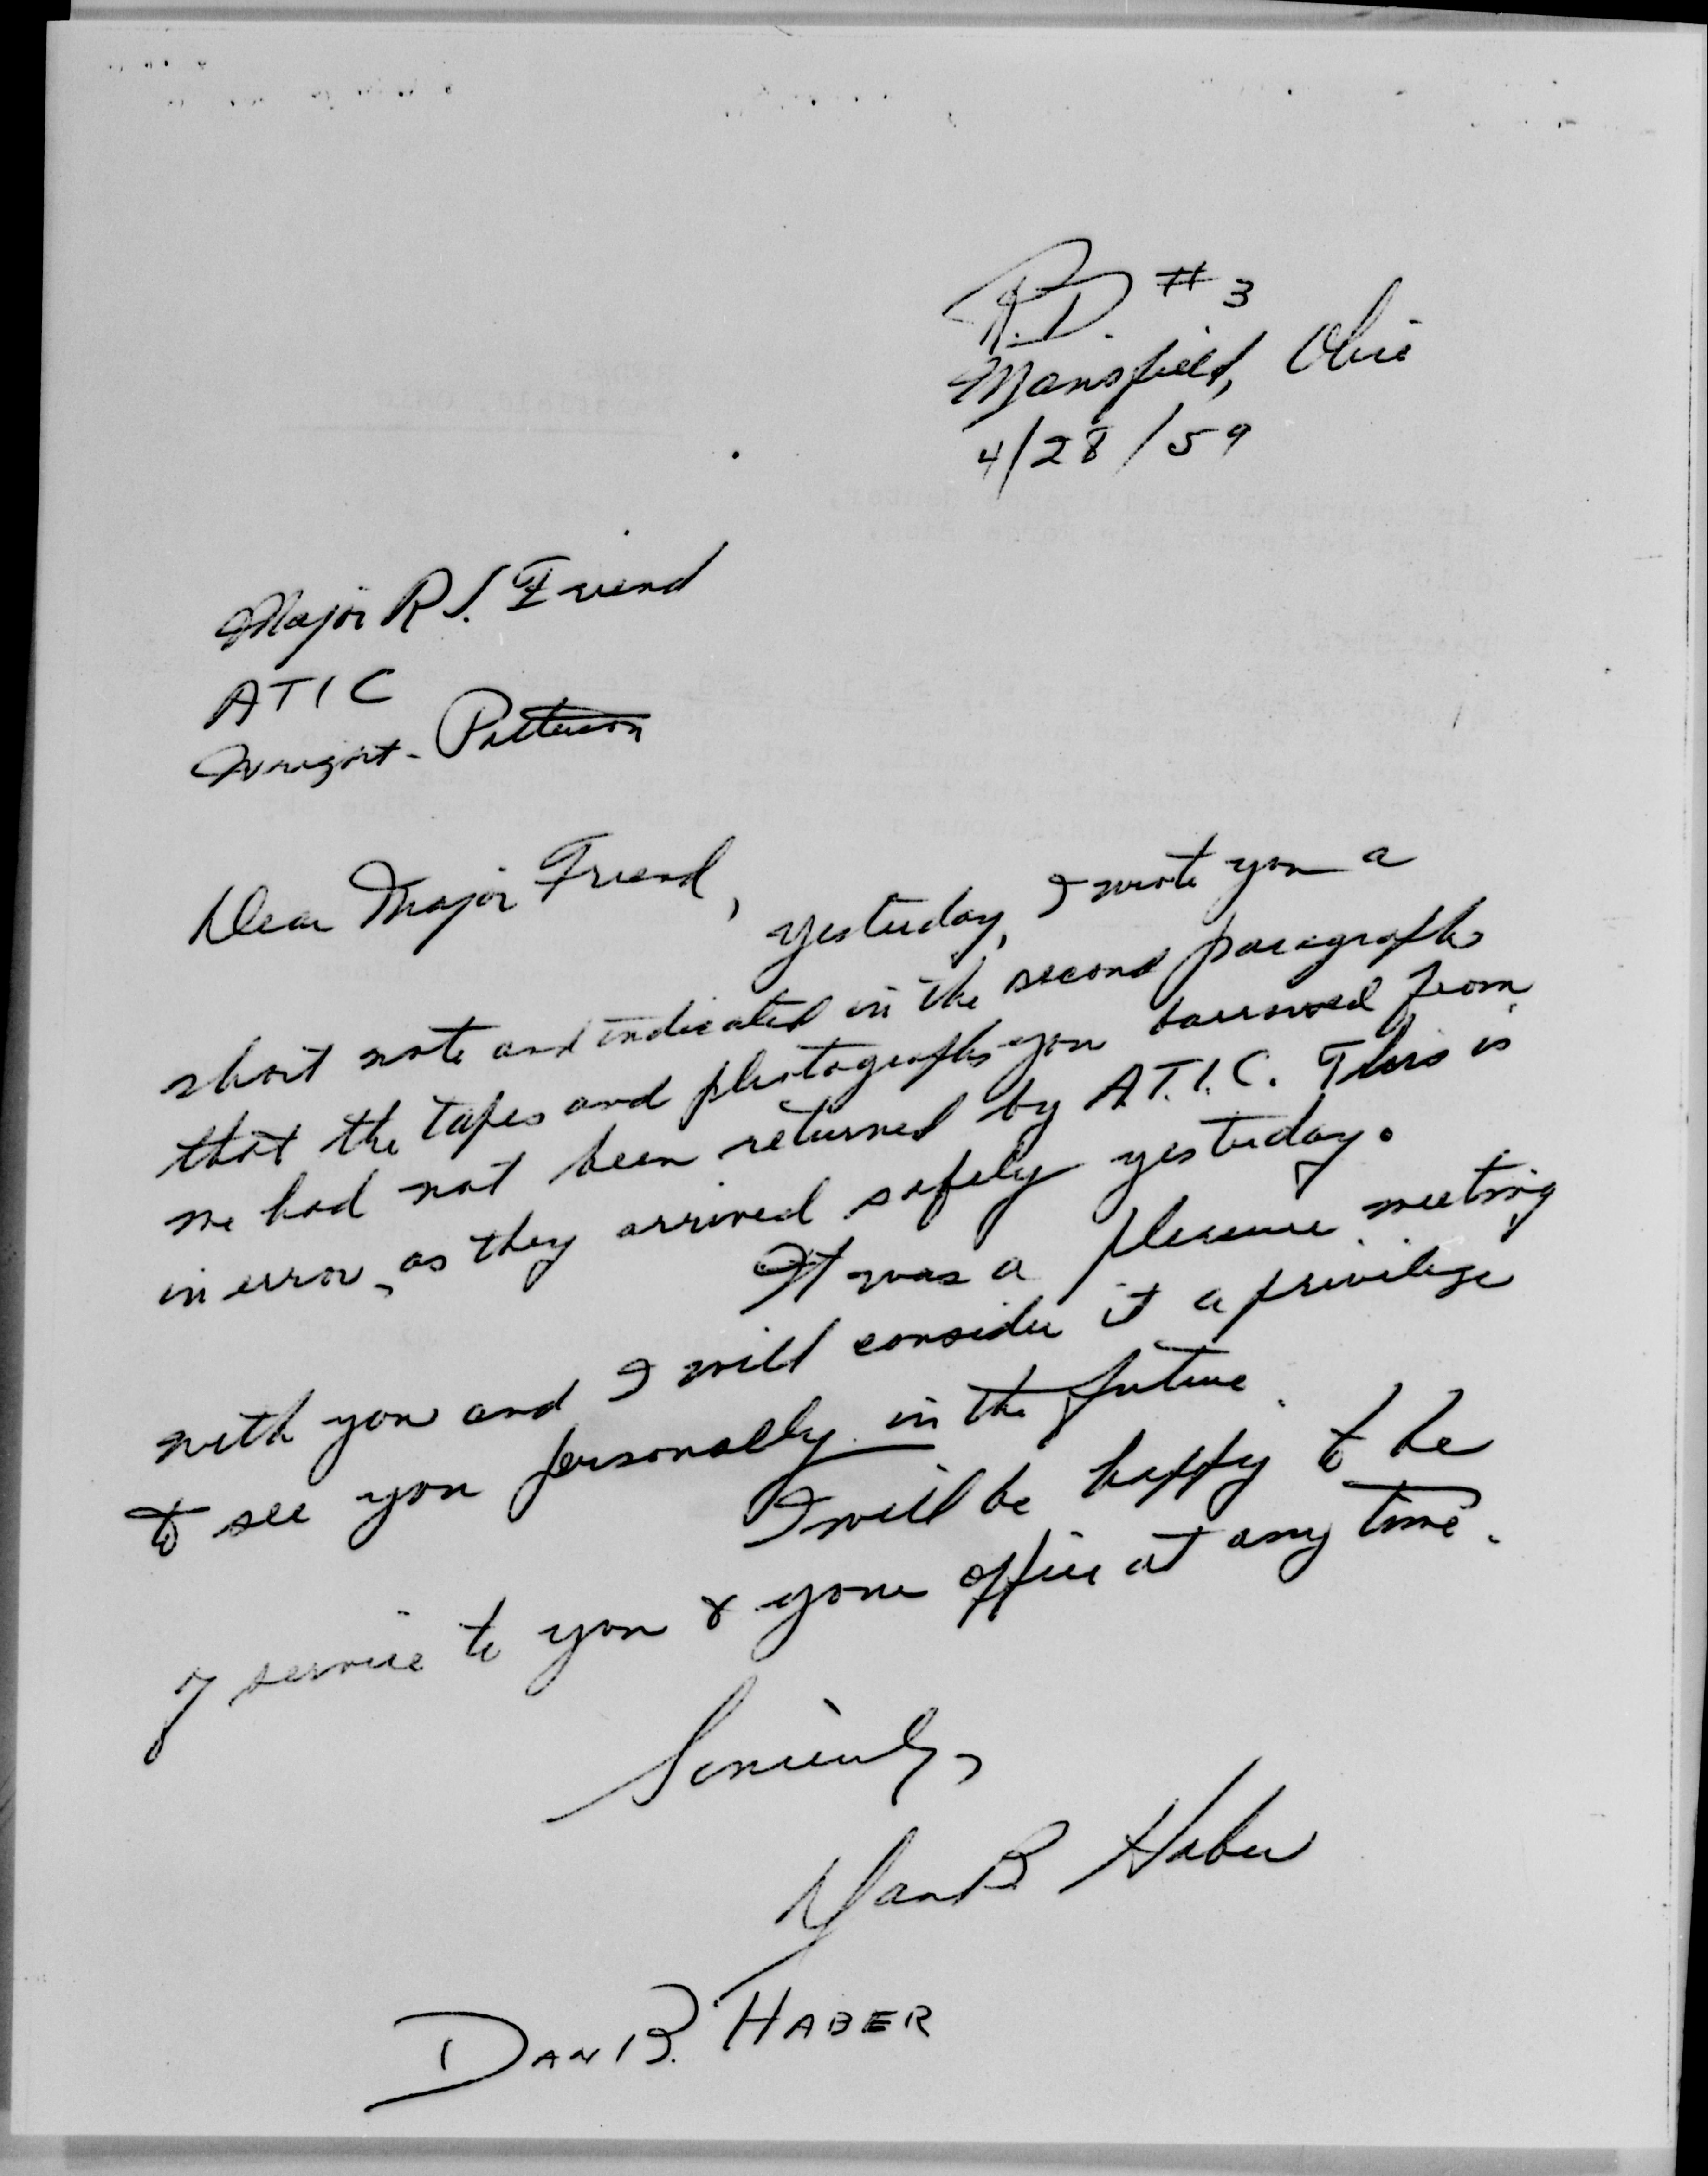 R.D. #3
Mansfield, Ohio
4/28/59
Major R J. Friend
ATIC
Wright-Patterson
Dear Major Friend,
Yesterday, I wrote you a
short note and indicated in the second paragraph
that the tapes and photographs you borrowed from
me had not been returned by A.T.I.C. This is
in error, as they arrived safely yesterday.
It was a pleasure meeting
with you and I will consider it a privilege
to see you personally in the future.
I will be happy to be
of service to you & your office at any time.
Sincerely,
Dan B Haber
DAN B. HABER